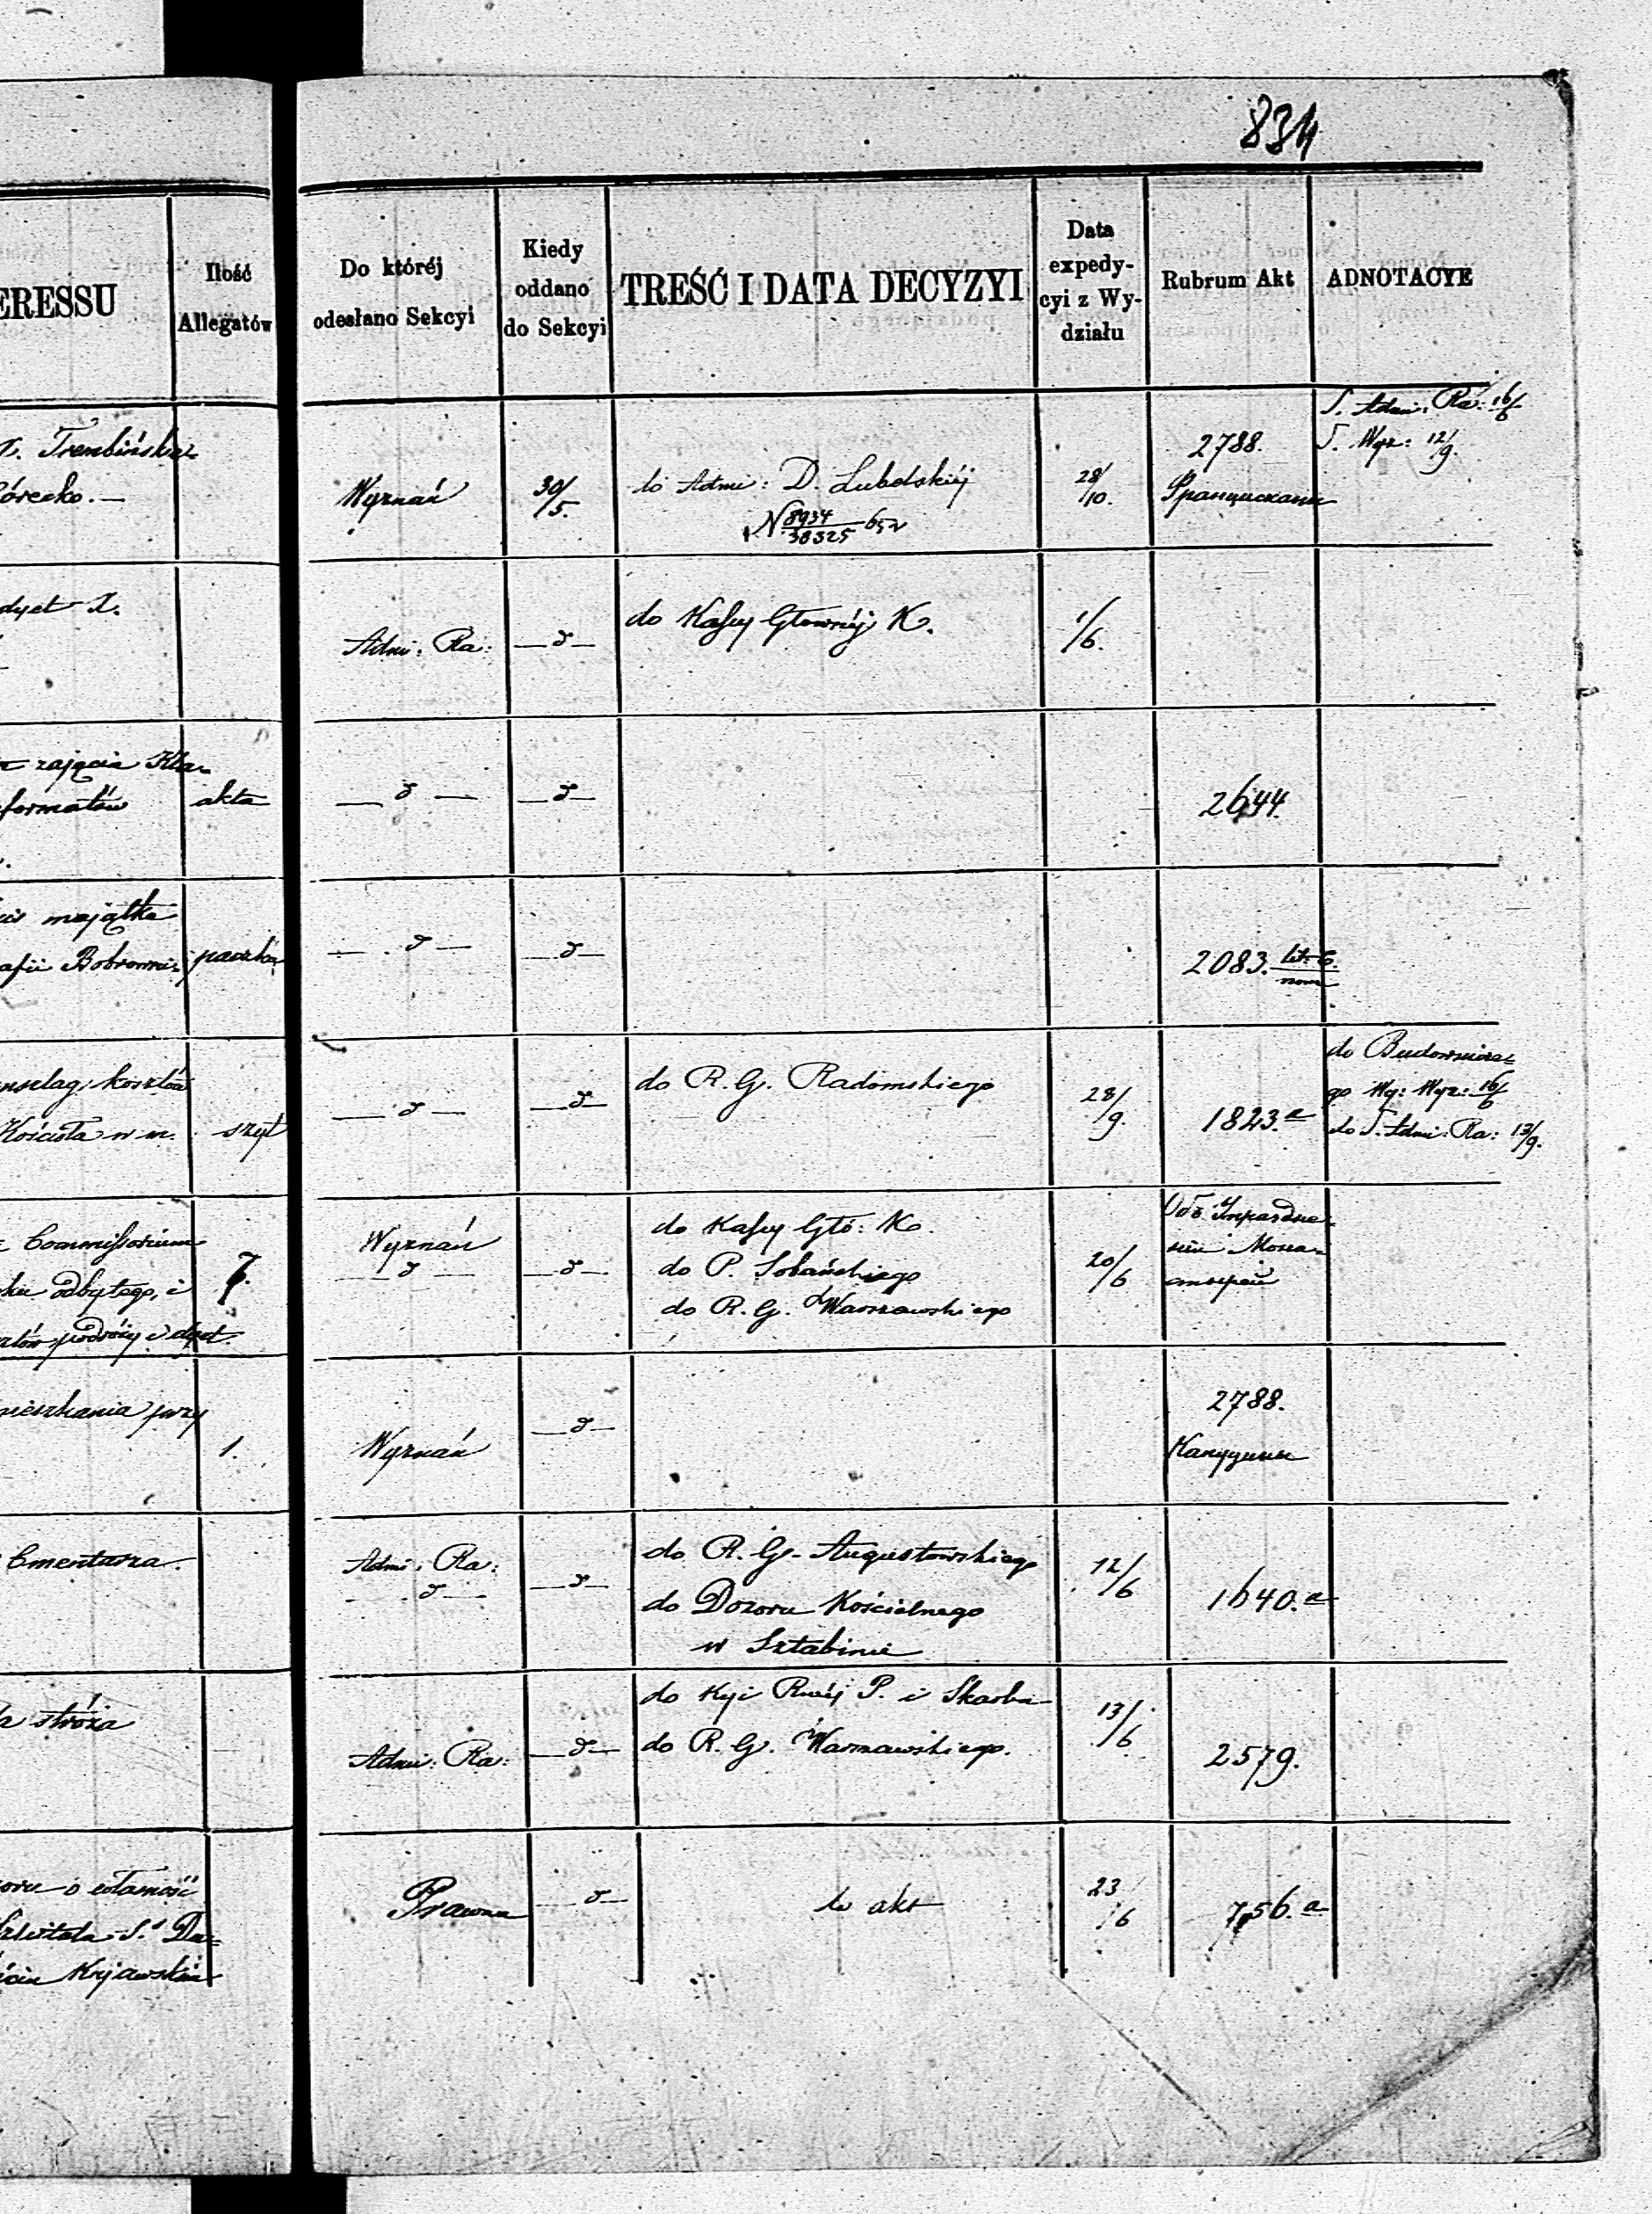 834
ERESSU
Ilość
Allegatów
Do któréj
odesłano Sekcyi
Kiedy
oddano
do Sekcyi
TREŚĆ I DATA DECYZYI
Data
expedy-
cyi z Wy-
działu
Rubrum Akt
ADNOTACYE
X. Trembińska
Górecko.—
Wyznań
30/5.
do Admi: D. Lubelskiéj
N 8934/38325
28/10.
2788.
Францискане
S. Admi: Ra: 16/6
S. Wyz: 12/9.
dyet X.
Admi: Ra:
—d—
do Kassy Głownéj K.
1/6.
zajęcia Kla=
formatów
akta
— d —
—d—
2644.
majątku
afii Bobrowni=
paczka
— d —
—d—
2083. lit: C.
anszlag, kosztów
Kościoła w m.
szyt
— d —
—d—
do R. G. Radomskiego
28/9.
1823.a
do Budownicze=
go Wy: Wyz: 16/6
do S. Admi: Ra: 13/9.
Commissorium
odbytego, i
podróży i dyet.
7.
Wyznań
— d —
—d—
do Kassy Głó: K.
do P. Sobańskiego
do R. G. Warszawskiego
20/6
Объ Упраздне=
нiи Мона=
стырей
mieszkania przy
1.
Wyznań
—d—
2788.
Капуцины
Cmentarza.
Admi: Ra:
— d —
—d—
do R. G. Augustowskiego
do Dozoru Kościelnego
w Sztabinie
12/6
1640.a
stróża
Admi: Ra:
—d—
do Kyi Rwéj P. i Skarbu
do R. G. Warszawskiego.
13/6
2579.
o własność
Szpitala S. Du=
Kujawskim
Prawna
—d—
do akt
23/6
756.a